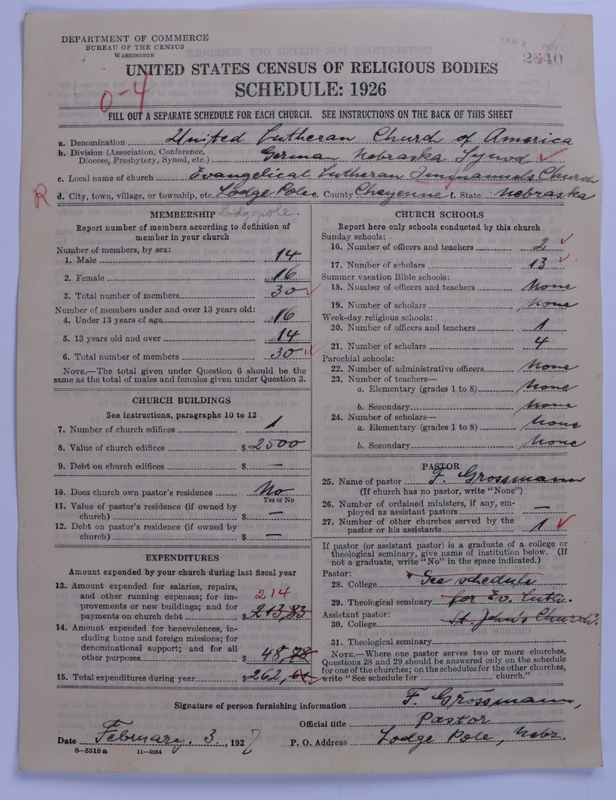 DEPARTMENT OF COMMERCE
BUREAU OF THE CENSUS
WASHINGTON
2540
UNITED STATES CENSUS OF RELIGIOUS BODIES
SCHEDULE: 1926
0-4
FILL OUT A SEPARATE SCHEDULE FOR EACH CHURCH. SEE INSTRUCTIONS ON THE BACK OF THIS SHEET
a. Denomination United Lutheran Church of America
b. Division (Association, Conference, Diocese, Presbytery, Synod, etc.) German Nebraska Synod
c. Local name of church Evangelical Lutheran Immanuels Church
R d. City, town, village, or township, etc. Lodge Pole e. County Cheyenne f. State Nebraska
Lodgepole.
MEMBERSHIP
Report number of members according to definition of
member in your church
Number of members, by sex:
1. Male 14
2. Female 16
3. Total number of members 30
Number of members under and over 13 years old:
4. Under 13 years of age 16
5. 13 years old and over 14
6. Total number of members 30
NOTE.—The total given under Question 6 should be
same as the total of males and females given under Question 3.
CHURCH BUILDINGS
See instructions, paragraphs 10 to 12
7. Number of church edifices 1
8. Value of church edifices $ 2500
9. Debt on church edifices $ —
10. Does church own pastor's residence No
Yes or No
11. Value of pastor's residence (if owned by
church) $ —
12. Debt on pastor's residence (if owned by
church) $ —
EXPENDITURES
Amount expended by your church during last fiscal year
13. Amount expended for salaries, repairs,
and other running expenses; for im-
provements or new buildings; and for
payments on church debt $ 213,83
214
14. Amount expended for benevolences, in-
cluding home and foreign missions; for
denominational support; and for all
other purposes $ 48,78
15. Total expenditures during year $ 262,61
CHURCH SCHOOLS
Report here only schools conducted by this church
Sunday schools:
16. Number of officers and teachers 2
17. Number of scholars 13
Summer vacation Bible schools:
18. Number of officers and teachers None
19. Number of scholars None
Week-day religious schools:
20. Number of officers and teachers 1
21. Number of scholars 4
Parochial schools:
22. Number of administrative officers None
23. Number of teachers—
a. Elementary (grades 1 to 8) None
b. Secondary None
24. Number of scholars—
a. Elementary (grades 1 to 8) None
b. Secondary None
PASTOR
25. Name of pastor F. Grossmann
(If church has no pastor, write "None")
26. Number of ordained ministers, if any, em-
ployed as assistant pastors —
27. Number of other churches served by the
pastor or his assistants 1
If pastor (or assistant pastor) is a graduate of a college or
theological seminary, give name of institution below. (If
not a graduate, write "No" in the space indicated.)
Pastor:
28. College See schedule
29. Theological seminary for Ev. Luth.
Assistant pastor:
30. College St. John's Church.
31. Theological seminary
NOTE.—Where one pastor serves two or more churches,
Questions 28 and 29 should be answered only on the schedule
for one of the churches; on the schedules for the other churches,
write "See schedule for church."
Signature of person furnishing information F. Grossmann,
Official title Pastor
Date February, 3., 1927 P. O. Address Lodge Pole, Nebr.
8-5518a 11-9054